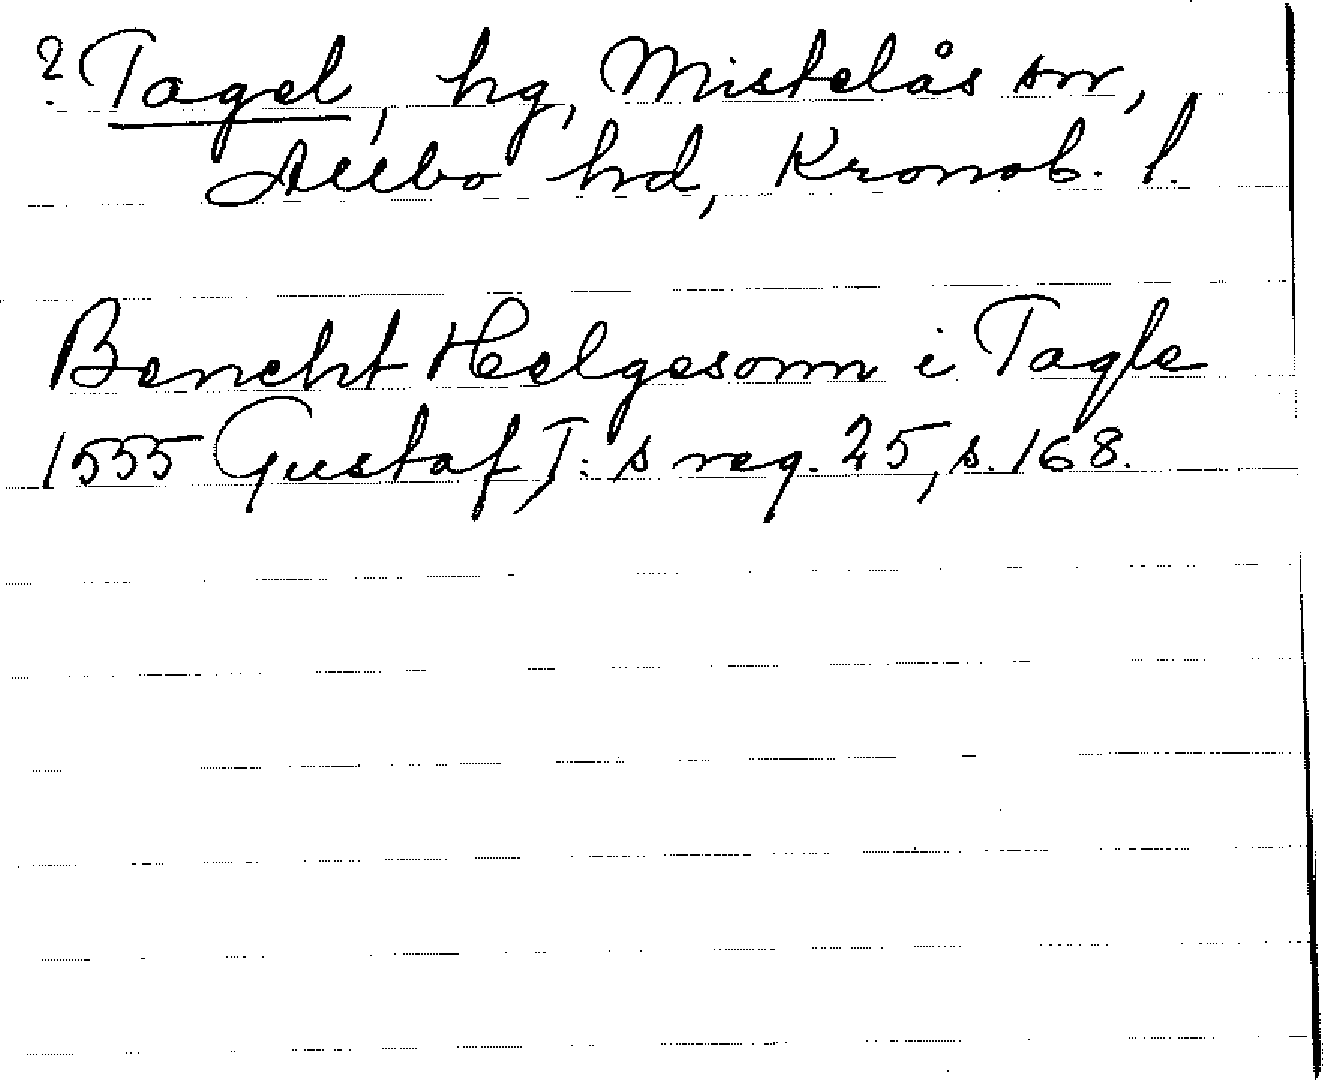 ? Tagel, hg, Mistelås sn,
Allbo hd, Kronob. l.
Bencht Helgesonn i Tagle
1555 Gustaf I:s reg. 25, s. 168.